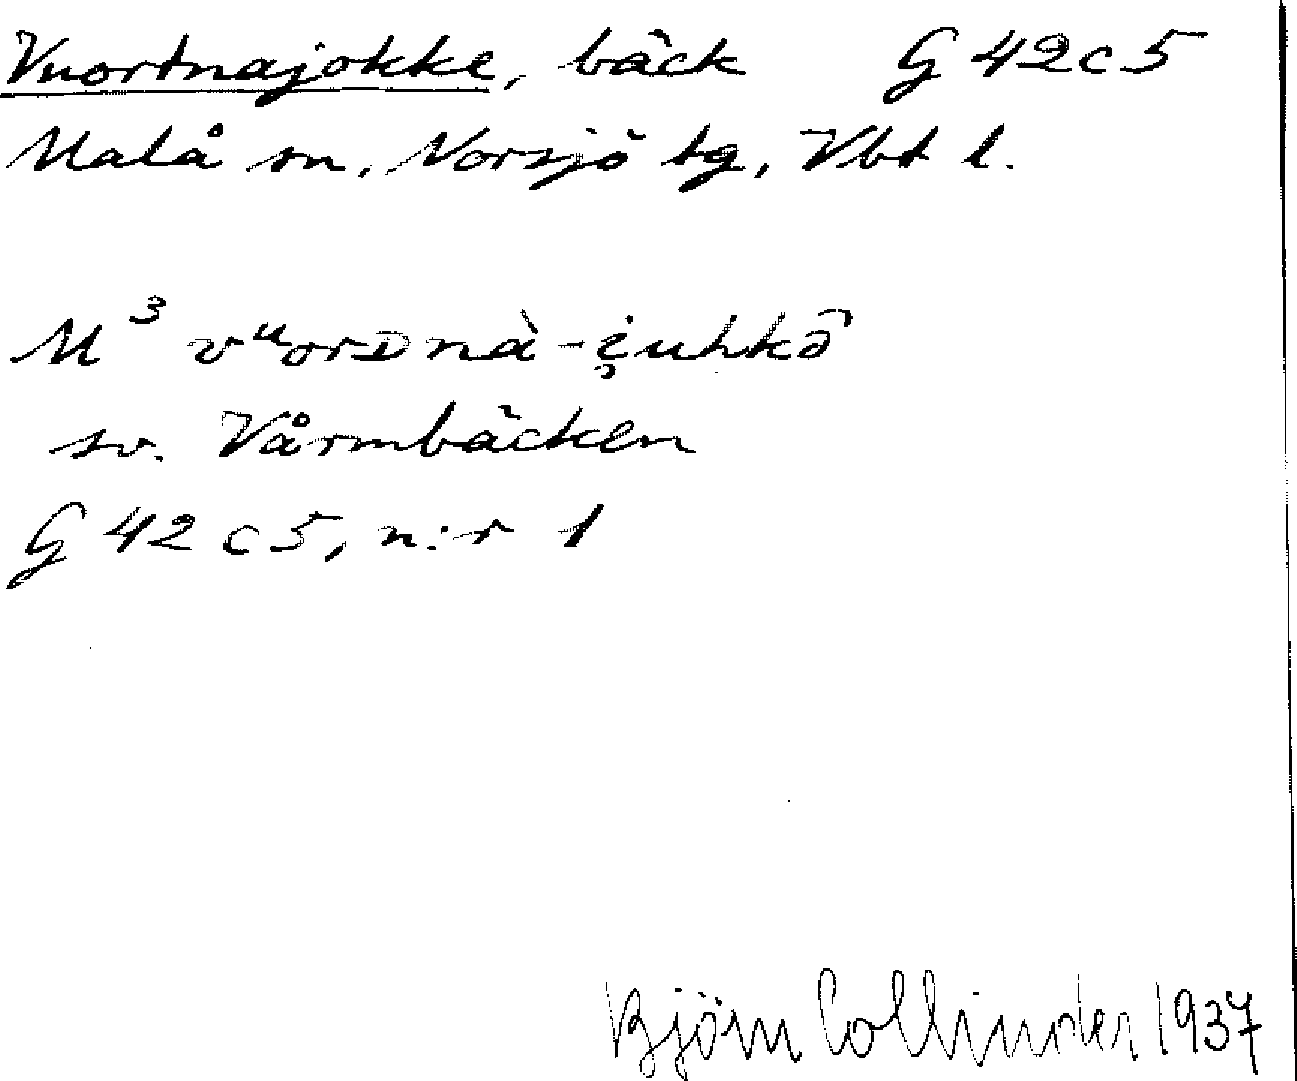 Vuortnajokke, bäck G 42 c 5
Malå sn, Norsjö tg, Vbt l.
M³ vᵘorᴅnà-i̯uhkə̂
sv. Vårmbäcken
G 42 c 5, n:r 1
Björn Collinder 1937